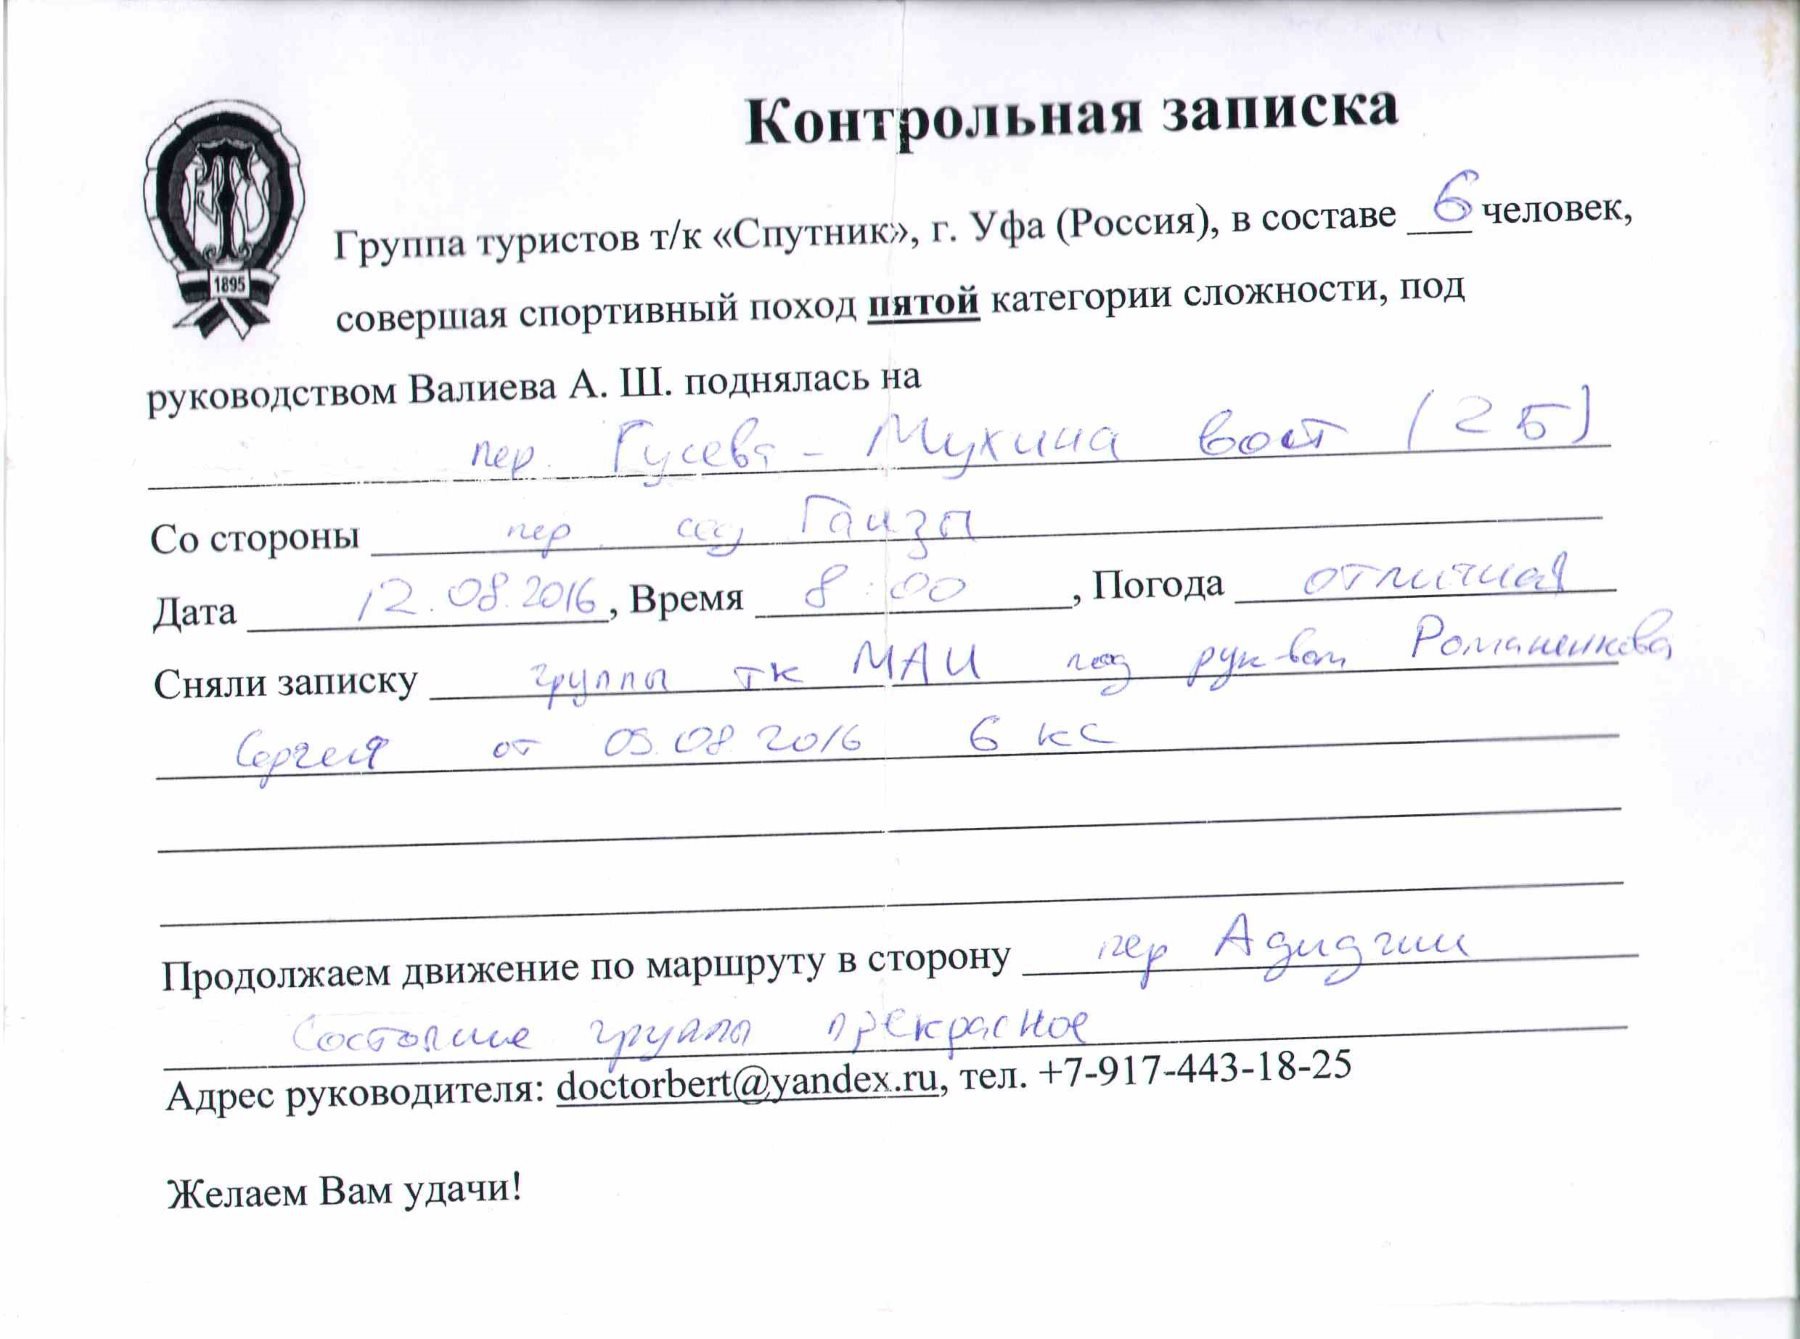 Контрольная записка
Группа туристов т/к «Спутник», г. Уфа (Россия), в составе 6 человек,
1895
совершая спортивный поход пятой категории сложности, под
руководством Валиева А. Ш. поднялась на
пер. Гусева - Мухина вост (2Б)
Со стороны пер. Гаизы
Дата 12.08.2016, Время 8:00, Погода отличная
Сняли записку группы тк МАИ под рук-вом Романенкова
Сергея от 05.08.2016 6 кс
Продолжаем движение по маршруту в сторону пер Адидгии
Состояние группы прекрасное
Адрес руководителя: doctorbert@yandex.ru, тел. +7-917-443-18-25
Желаем Вам удачи!